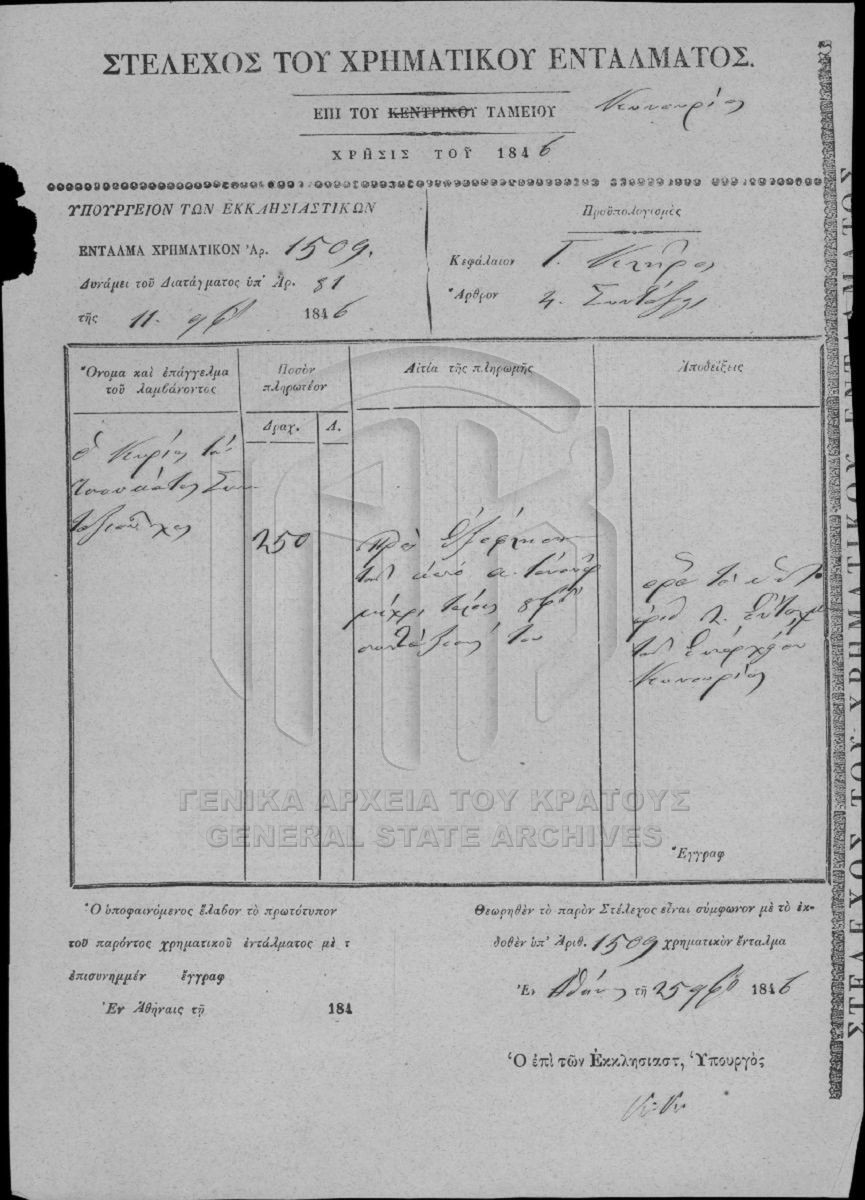 ΣΤΕΛΕΧΟΣ ΤΟΥ ΧΡΗΜΑΤΙΚΟΥ ΕΝΤΑΛΜΑΤΟΣ.
ΕΠΙ ΤΟΥ ΚΕΝΤΡΙΚΟΥ ΤΑΜΕΙΟΥ
ΧΡΗΣΙΣ ΤΟΥ 1846
ΥΠΟΥΡΓΕΙΟΝ ΤΩΝ ΕΚΚΛΗΣΙΑΣΤΙΚΩΝ
ΕΝΤΑΛΜΑ ΧΡΗΜΑΤΙΚΟΝ Ἀρ. 1509.
Δυνάμει τοῦ Διατάγματος ὑπ' Ἀρ. 81
τῆς 11. 9βρ 1846
Προϋπολογισμὸς
Κεφάλαιον Γ.
Ἄρθρον 4. Συντάξεις
Ὄνομα καὶ ἐπάγγελμα
τοῦ λαμβάνοντος
Ποσὸν
πληρωτέον
Αἰτία τῆς πληρωμῆς
Ἀποδείξεις
Δραχ. Λ.
250
πρὸς ἐξόφλησιν
τῆς ἀπὸ
μέχρι τέλους 8βρίου
συντάξεώς του
Ἔγγραφ
ΓΕΝΙΚΑ ΑΡΧΕΙΑ ΤΟΥ ΚΡΑΤΟΥΣ
GENERAL STATE ARCHIVES
Ὁ ὑποφαινόμενος ἔλαβον τὸ πρωτότυπον
τοῦ παρόντος χρηματικοῦ ἐντάλματος μὲ τ
ἐπισυνημμέν ἔγγραφ
Ἐν Ἀθήναις τῇ 184
Θεωρηθὲν τὸ παρὸν Στέλεχος εἶναι σύμφωνον μὲ τὸ ἐκ-
δοθὲν ὑπ' Ἀριθ. 1509 χρηματικὸν ἔνταλμα
Ἐν Ἀθήναις τῇ 25 9βρίου 1846
Ὁ ἐπὶ τῶν Ἐκκλησιαστ, Ὑπουργὸς
ΣΤΕΛΕΧΟΣ ΤΟΥ ΧΡΗΜΑΤΙΚΟΥ ΕΝΤΑΛΜΑΤΟΣ